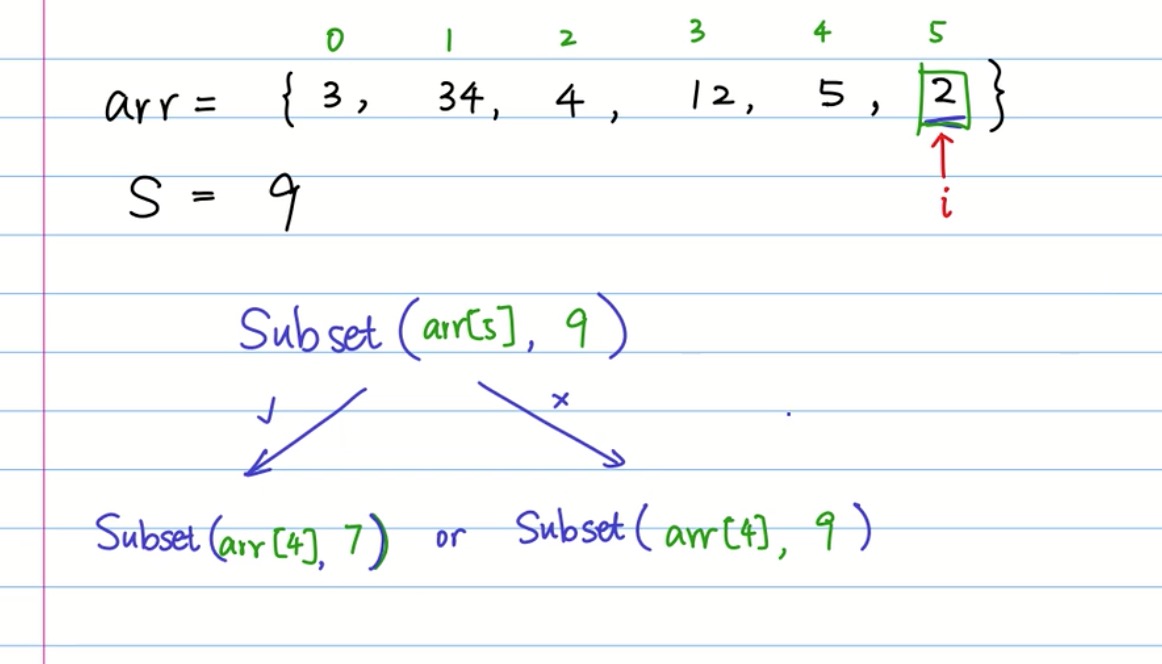 0 1 2 3 4 5
arr = { 3, 34, 4, 12, 5, 2 }
i
S = 9
Subset (arr[5], 9)
✓ ×
Subset(arr[4], 7) or Subset(arr[4], 9)